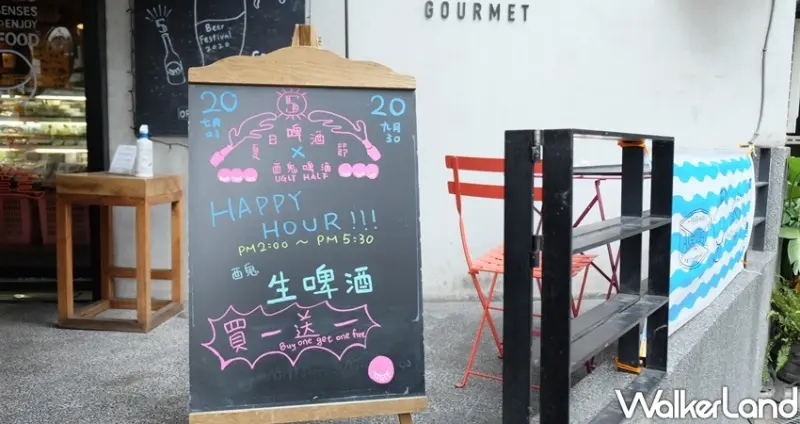 SENSES
ENJOY
FOOD
5
Beer
Festival
2020
GOURMET
20
七月
01
5
20
九月
30
夏日啤酒節
×
酉鬼啤酒
UGLY HALF
HAPPY
HOUR!!!
PM2:00 ~ PM5:30
酉鬼
生啤酒
買一送一
Buy one get one free
WalkerLand